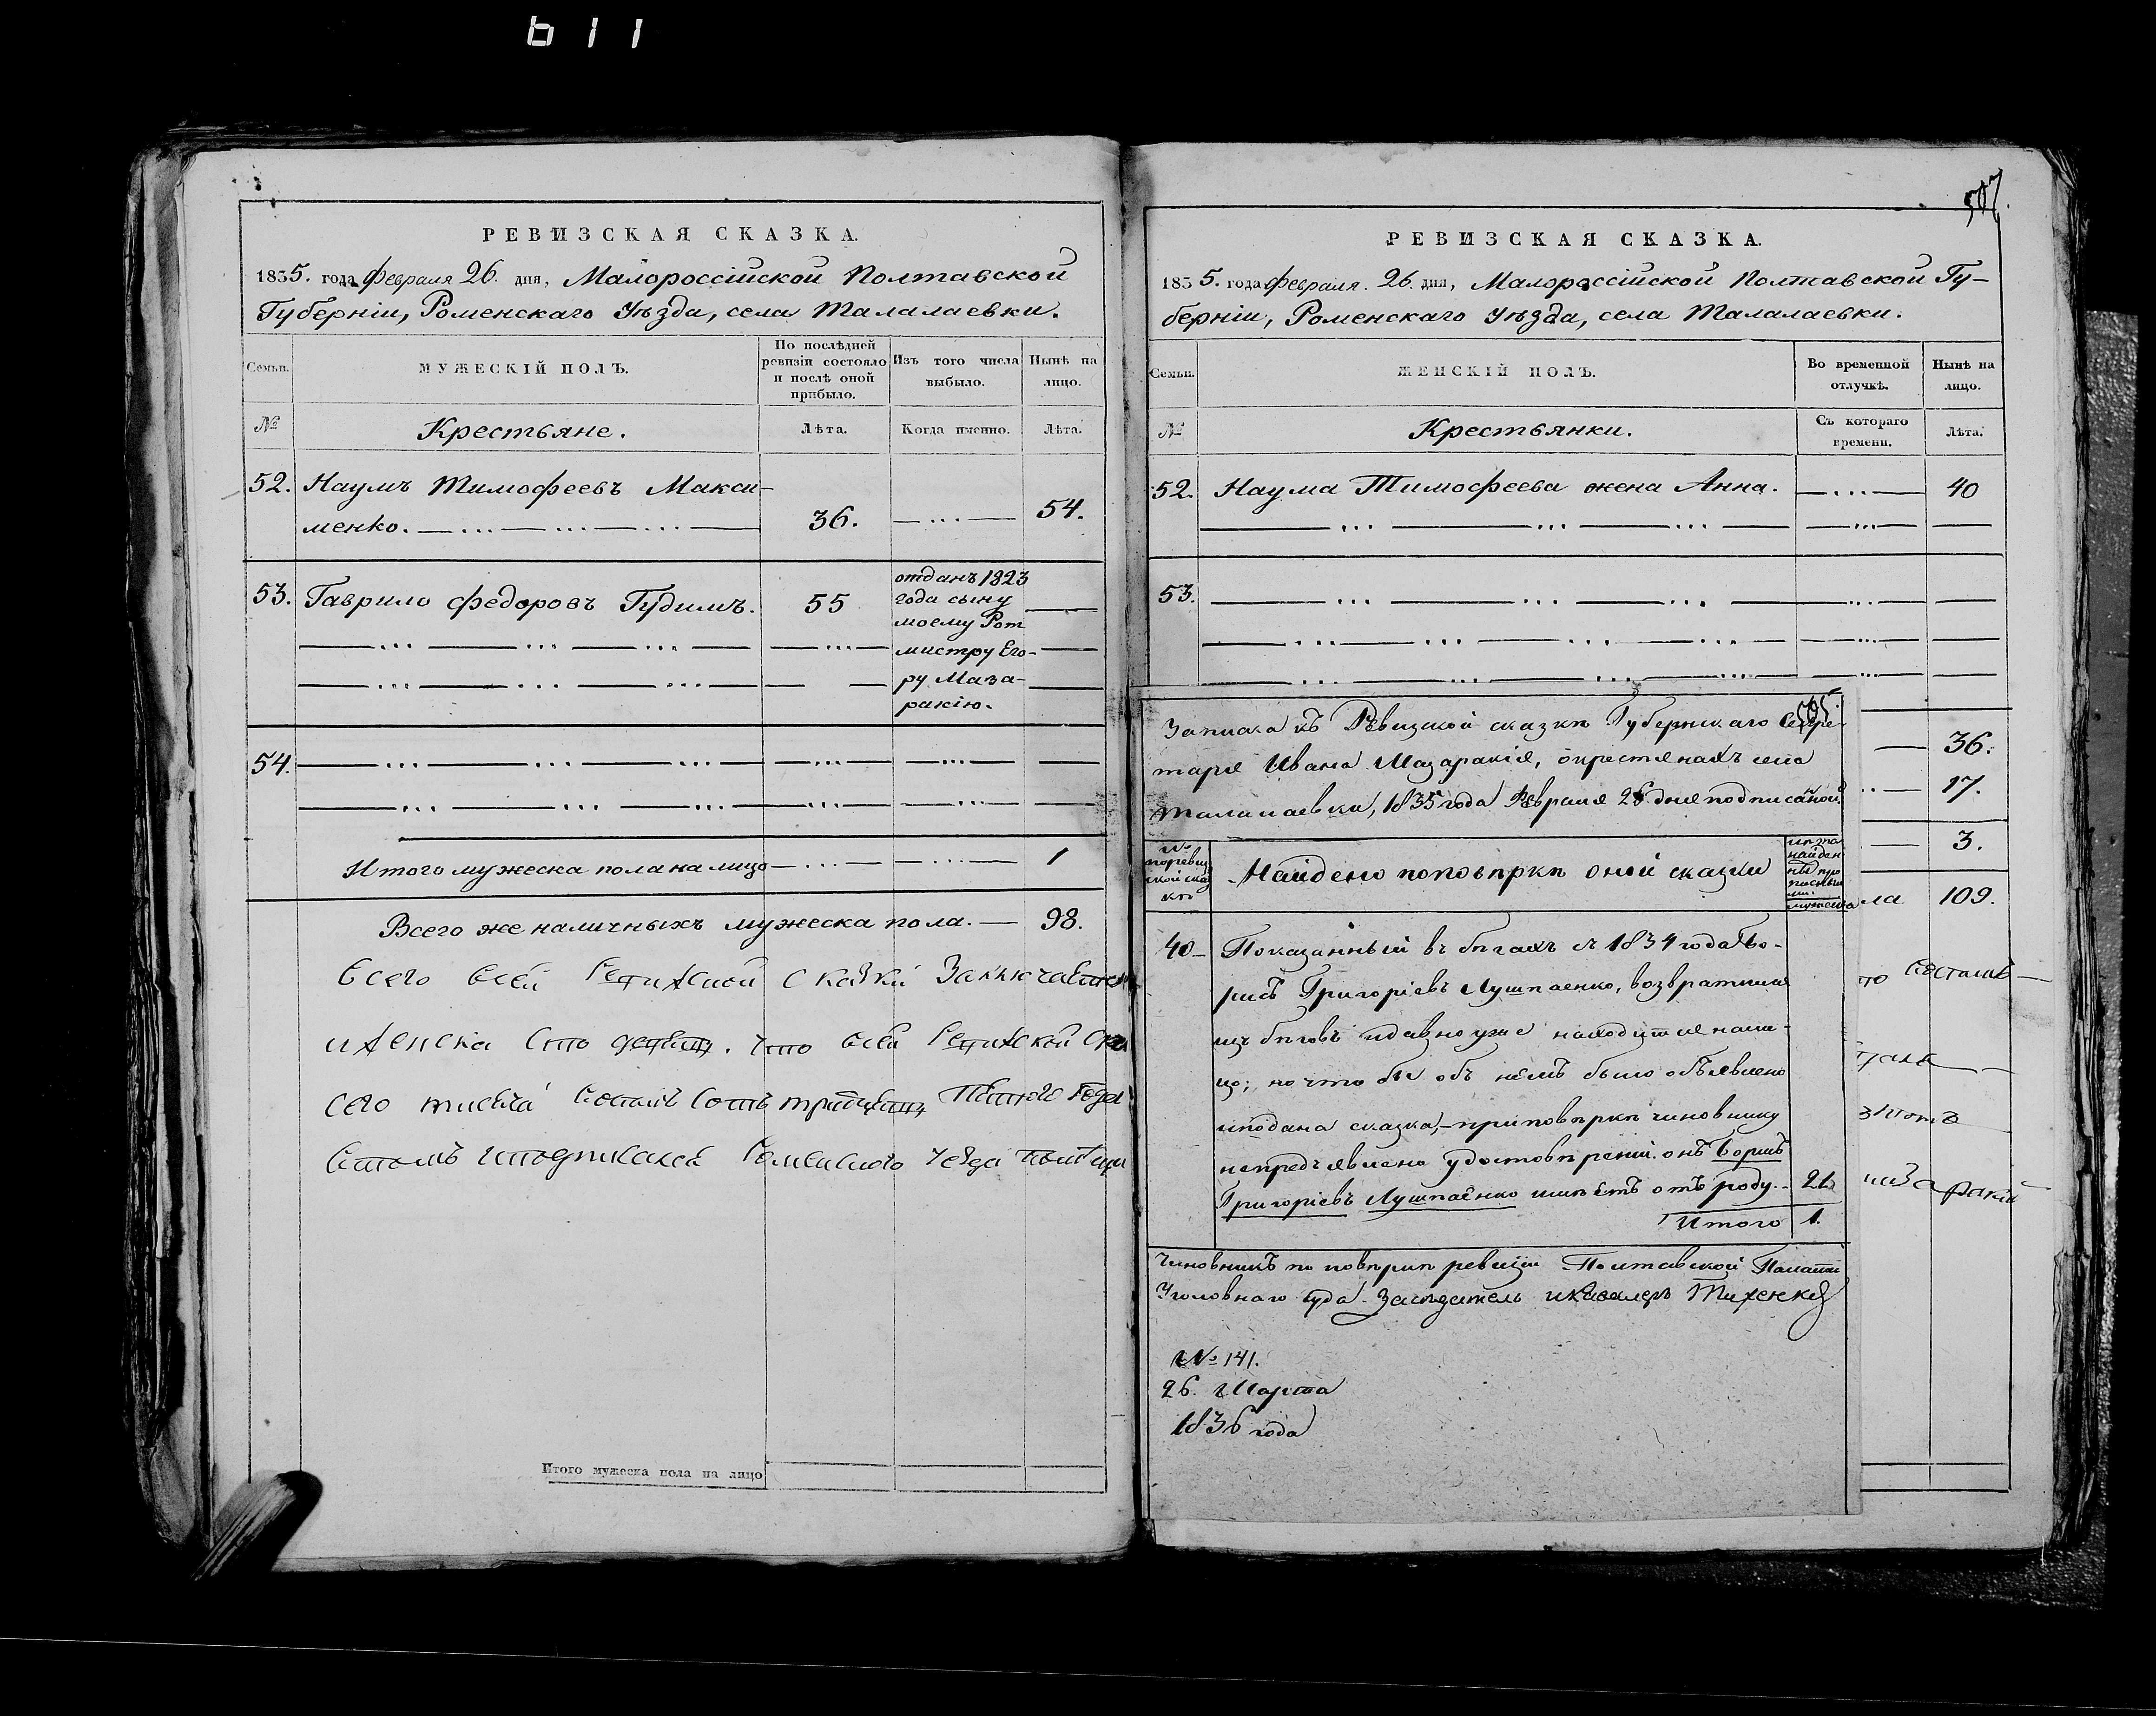 611
РЕВИЗСКАЯ СКАЗКА.
1835. года Февраля 26. дня, Малороссійской Полтавской
Губерніи, Роменскаго Уѣзда, села Талалаевки.
Семьи.
МУЖЕСКІЙ ПОЛЪ.
По послѣдней
ревизіи состояло
и послѣ оной
прибыло.
Изъ того числа
выбыло.
Нынѣ на
лицо.
№
Крестьяне.
Лѣта.
Когда именно.
Лѣта.
52. Наумъ Тимофеевъ Макси-
менко. 36. 54.
53. Гаврило Федоровъ Гудимъ. 55
отданъ 1823
года сыну
моему Рот
мистру Его-
ру Маза-
ракію.
54.
Итого мужеска пола на лицо 1
Всего же наличныхъ мужеска пола. 98.
всего всей Ревизской сказки Заключается
и женска сто девять. что всей Ревизской
сего тысяча восемь сотъ тридцять Пятого Года
Роменского
Итого мужеска пола на лицо
507.
РЕВИЗСКАЯ СКАЗКА.
1835. года Февраля. 26. дня, Малороссійской Полтавской Гу-
берніи, Роменскаго Уѣзда, села Талалаевки.
Семьи.
ЖЕНСКІЙ ПОЛЪ.
Во временной
отлучкѣ.
Нынѣ на
лицо.
№
Крестьянки.
Съ котораго
времени.
Лѣта.
52. Наума Тимофеева жена Анна. 40
53.
36.
17.
3.
ла 109.
Записка къ Ревизской сказкѣ Губернскаго Секре-
таря Ивана Мазаракія, о крестянахъ села
Талалаевки, 1835 года Февраля 26 дня подписаной.
№
по ревиз
ской сказ
кѣ
Найдено по повѣркѣ оной сказки
найден
мужеска
40 Показанный въ бѣгахъ съ 1834 года Бо-
рисъ Григоріевъ Лушпаенко, возвратился
изъ бѣговъ и давно уже находится на ли-
цо; но что бы объ нёмъ было объявлено
и подана сказка,- при повѣркѣ чиновнику
непредъявлено удостовѣренія. онъ Борисъ
Григоріевъ Лушпаенко имѣетъ отъ роду. 21
Итого 1.
Чиновникъ по повѣркѣ ревизіи Полтавской Палаты
Уголовнаго Суда Засѣдатель и Кавалеръ
№ 141.
26. Марта
1836 года